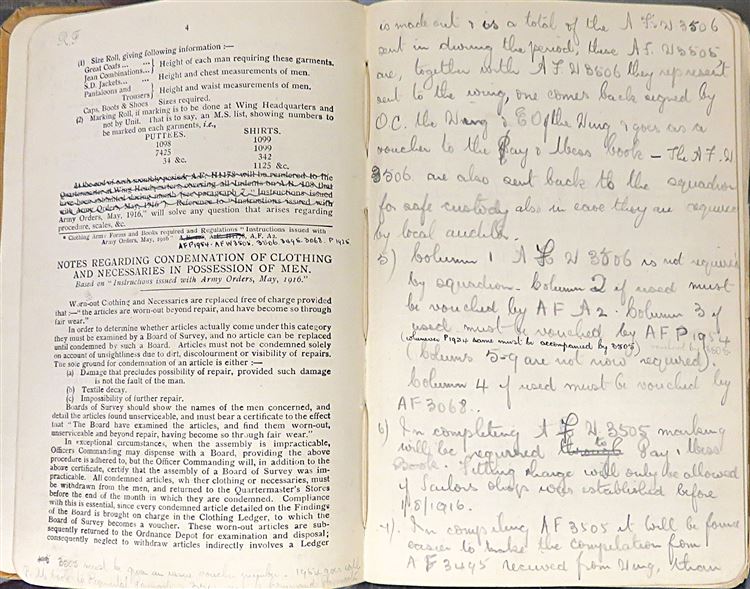 R.F
4
(1) Size Roll, giving following information :—
Great Coats ... ...
Jean Combinations... } Height of each man requiring these garments.
S.D. Jackets... ... } Height and chest measurements of men.
Pantaloons and
Trousers } Height and waist measurements of men.
Caps, Boots & Shoes Sizes required.
(2) Marking Roll, if marking is to be done at Wing Headquarters and
not by Unit. That is to say, an M.S. list, showing numbers to
be marked on each garments, i.e.,
PUTTEES. SHIRTS.
1098 1099
7425 1099
34 &c. 342
1125 &c.
Army Orders, May, 1916," will solve any question that arises regarding
procedure, scales, &c.
* Clothing Army Forms and Books required and Regulations "Instructions issued with
Army Orders, May, 1916" A.F. A2.
AFP1954. AFW3505. 3506. 3495. 3068. P1925
NOTES REGARDING CONDEMNATION OF CLOTHING
AND NECESSARIES IN POSSESSION OF MEN.
Based on "Instructions issued with Army Orders, May, 1916."
Worn-out Clothing and Necessaries are replaced free of charge provided
that :—"the articles are worn-out beyond repair, and have become so through
fair wear."
In order to determine whether articles actually come under this category
they must be examined by a Board of Survey, and no article can be replaced
until condemned by such a Board. Articles must not be condemned solely
on account of unsightliness due to dirt, discolourment or visibility of repairs.
The sole ground for condemnation of an article is either :—
(a) Damage that precludes possibility of repair, provided such damage
is not the fault of the man.
(b) Textile decay.
(c) Impossibility of further repair.
Boards of Survey should show the names of the men concerned, and
detail the articles found unserviceable, and must bear a certificate to the effect
that "The Board have examined the articles, and find them worn-out,
unserviceable and beyond repair, having become so through fair wear."
In exceptional circumstances, when the assembly is impracticable,
Officers Commanding may dispense with a Board, providing the above
procedure is adhered to, but the Officer Commanding will, in addition to the
above certificate, certify that the assembly of a Board of Survey was im-
practicable. All condemned articles, whether clothing or necessaries, must
be withdrawn from the men, and returned to the Quartermaster's Stores
before the end of the month in which they are condemned. Compliance
with this is essential, since every condemned article detailed on the Findings
of the Board is brought on charge in the Clothing Ledger, to which the
Board of Survey becomes a voucher. These worn-out articles are sub-
sequently returned to the Ordnance Depot for examination and disposal;
consequently neglect to withdraw articles indirectly involves a Ledger
3505 must be given an issue voucher number
is made out & is a total of the AF W 3506
sent in during the period, these AF. W3505
are, together with AF W3506 they represent
sent to the wing, one comes back signed by
O.C. the Wing & EO of the Wing & goes as a
voucher to the Pay & Mess book – The AF W
3506 are also sent back to the squadron
for safe custody also in case they are required
by local auditor.
5) Column 1 AF W 3506 is not required
by squadron. Column 2 if used must
be vouched by AF A2. Column 3 if
used must be vouched by AFP1954
(whenever P1954 same must be accompanied by 3505)
(Columns 5-9 are not now required).
Column 4 if used must be vouched by
AF3068.
6) In completing AF W 3505 marking
will be required to Pay & Mess
Book. Fitting charge will only be allowed
if Tailors shop was established before
1/8/1916.
7) In compiling AF3505 it will be found
easier to make the compilation from
AF3495 received from Wing, than